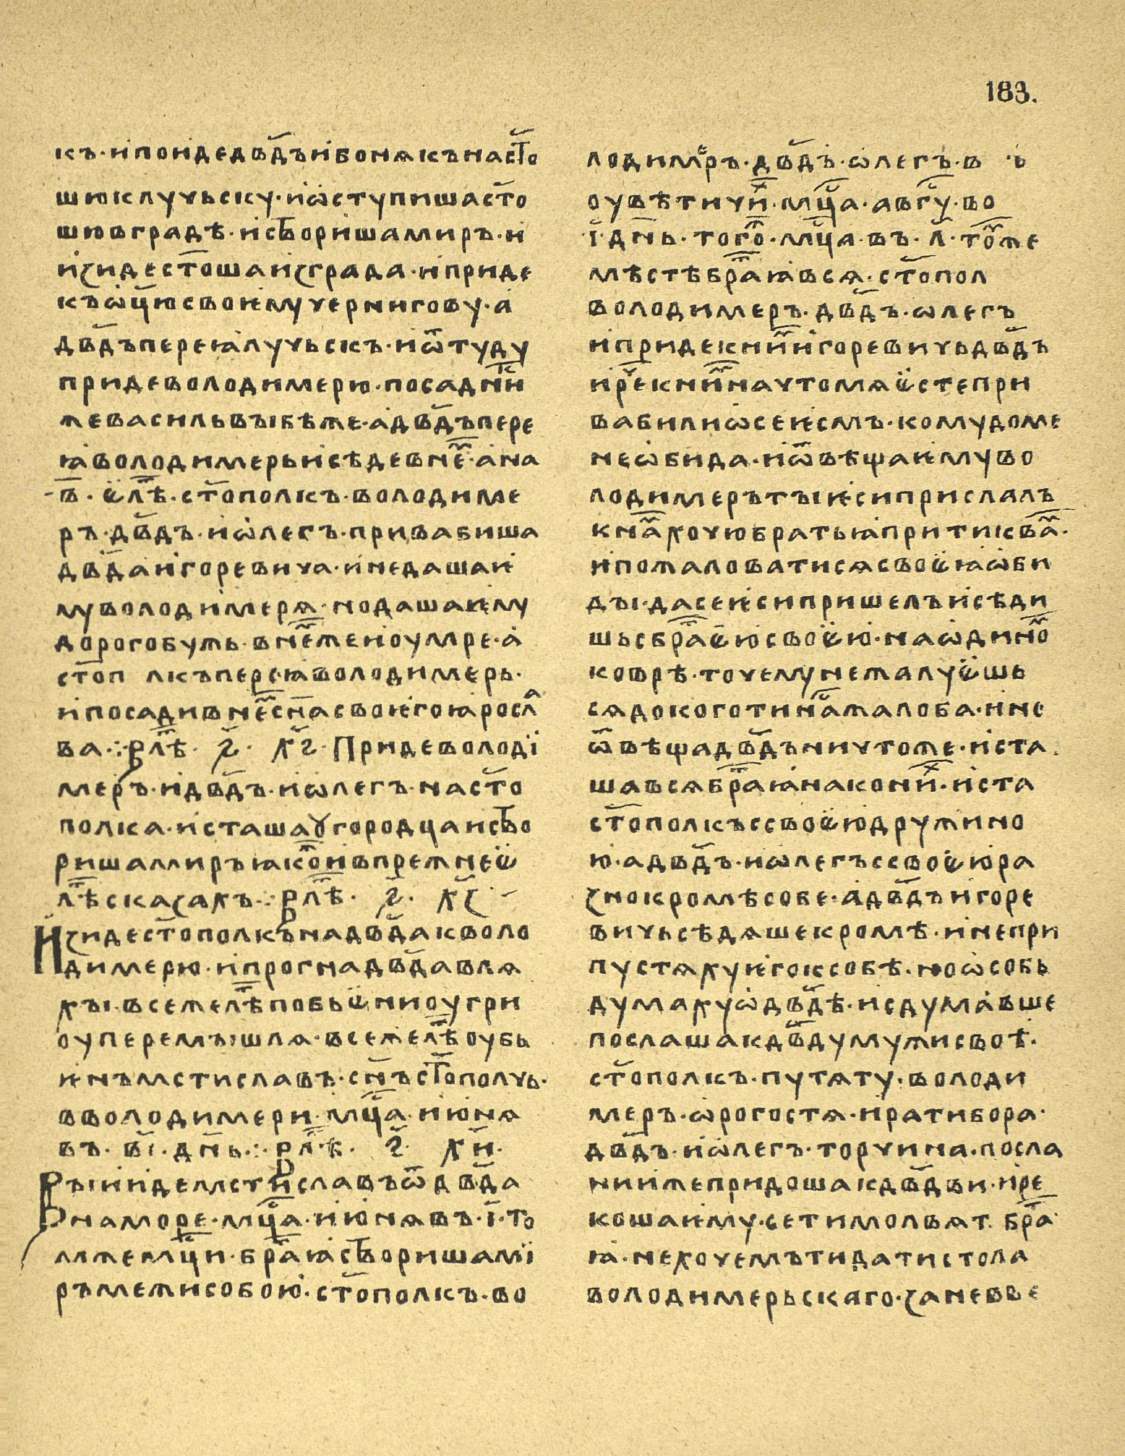 183.
къ·ипоидедв҃дъибонякънаст҃о
шюклучьску·иѡступишаст҃о
шювградѣ·иств҃оришамиръ·и
изидест҃ошаизграда·иприде
къѡц҃юсвоѥмучернигову·а
двд҃ъпереꙗлучьскъ·иѿтуду
придеволодимерю·посадникъ
жевасильвъıбѣже·адвд҃ъпере
ꙗволодимерьисѣдевнемь·ана
в҃·ѥлѣт·ст҃ополкъ·володиме
ръ·двд҃ъ·иѡлегъ·привабиша
двд҃аигоревича·инедашаѥ
муволодимеря·нодашаѥму
дорогобужь·внемжеиоумре·а
ст҃оп лкъпереꙗволодимерь·
ипосадивнемсн҃асвоѥгоꙗросл
ва·:·Влѣт·҂ѕ҃·х҃ѕ҃·Придеволодї
меръ·идвд҃ъ·иѡлегъ·наст҃о
полка·исташаꙋгородцаиств҃о
ришамиръꙗкоивпрежнеѥ
лѣтсказахъ·:·Влѣт·҂ѕ҃·х҃з҃·
Изидест҃ополкънадвд҃акволо
димерю·ипрогнадвд҃авля
хъı·всежелѣтпобьѥниоугри
оуперемъıшля·всежелѣтоубь
ѥнъмстиславъ·сн҃ъст҃ополчь·
вволодимери·мц҃а·июня
въ·в҃ı·дн҃ь·:·Влѣт·҂ѕ҃·х҃и҃·
Въıиидемстиславъѿдвд҃а
наморе·мц҃а·июнявъ·ı҃·то
мжемц҃и·братꙗств҃оришамї
ръмежисобою·ст҃ополкъ·во
лодимѣръ·двд҃ъ·ѡлегъ·в
оувѣтичих·мц҃а·авгу·во
ı҃·дн҃ь·тогож·мц҃а·въ·л҃·томже
мѣстѣбратꙗвся·ст҃опол
володимеръ·двд҃ъ·ѡлегъ
ипридекнимигоревичьдвд҃ъ
иречкнимначтомяѥстепри
вабилиѡсеѥсмъ·комудоме
неѡбида·иѿвѣщаѥмуво
лодимерътъıѥсиприслалъ
кнамхоуюбратьꙗпритиквам·
ипожаловатисясвоѥꙗѡби
дъı·дасеѥсипришелъисѣди
шьсбратѥюсвоѥю·наѡдином
коврѣ·точемунежалуѥшь
сядокоготинасжалоба·ине
ѿвѣщадвд҃ъничтоже·иста
шавсябратꙗнаконих·иста
ст҃ополкъссвоѥюдружино
ю·адвд҃ъ·иѡлегъссвоѥюра
знокромѣсобе·адвд҃ъигоре
вичьсѣдяшекромѣ·инепри
пустяхуѥгоксобѣ·ноѡсобь
думахуѡдвд҃ѣ·исдумавше
послашакдвд҃умужисвоѣ·
ст҃ополкъ·путяту·володи
меръ·ѡрогостя·иратибора·
двд҃ъ·иѡлегъ·торчина·посла
нииижепридошакдвд҃ви·ире
кошаѥму·сетимолвят братꙗ
ꙗ·нехочемътидатистола
володимерьскаго·заневве